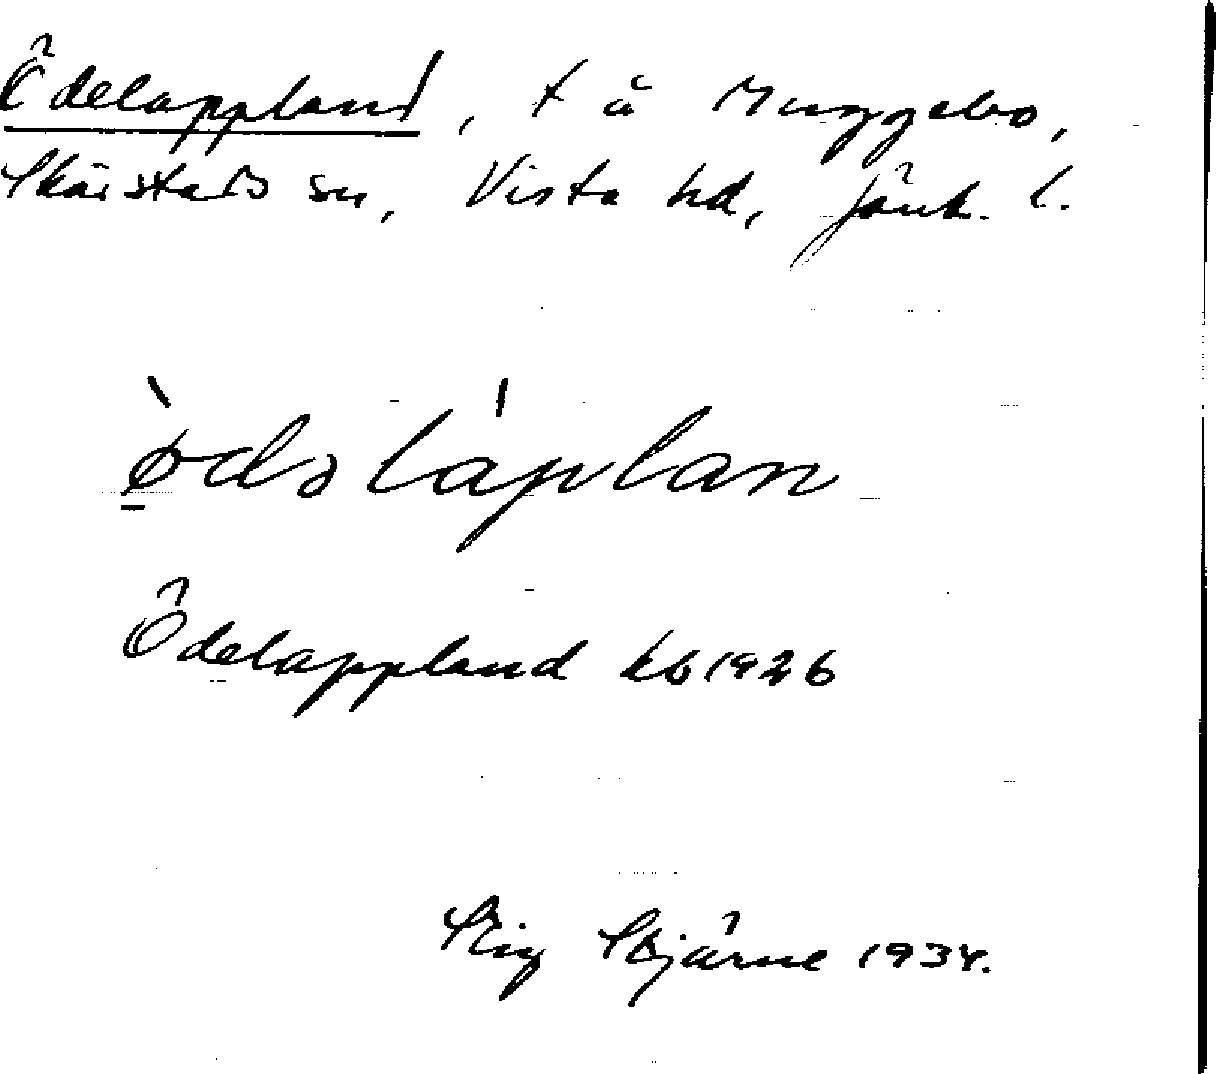 Ödelappland, t å Muggebo,
Skärstads sn, Vista hd, Jönk. l.
ø̀dəláplan
Ödelappland kb 1926
Stig Stjärne 1934.